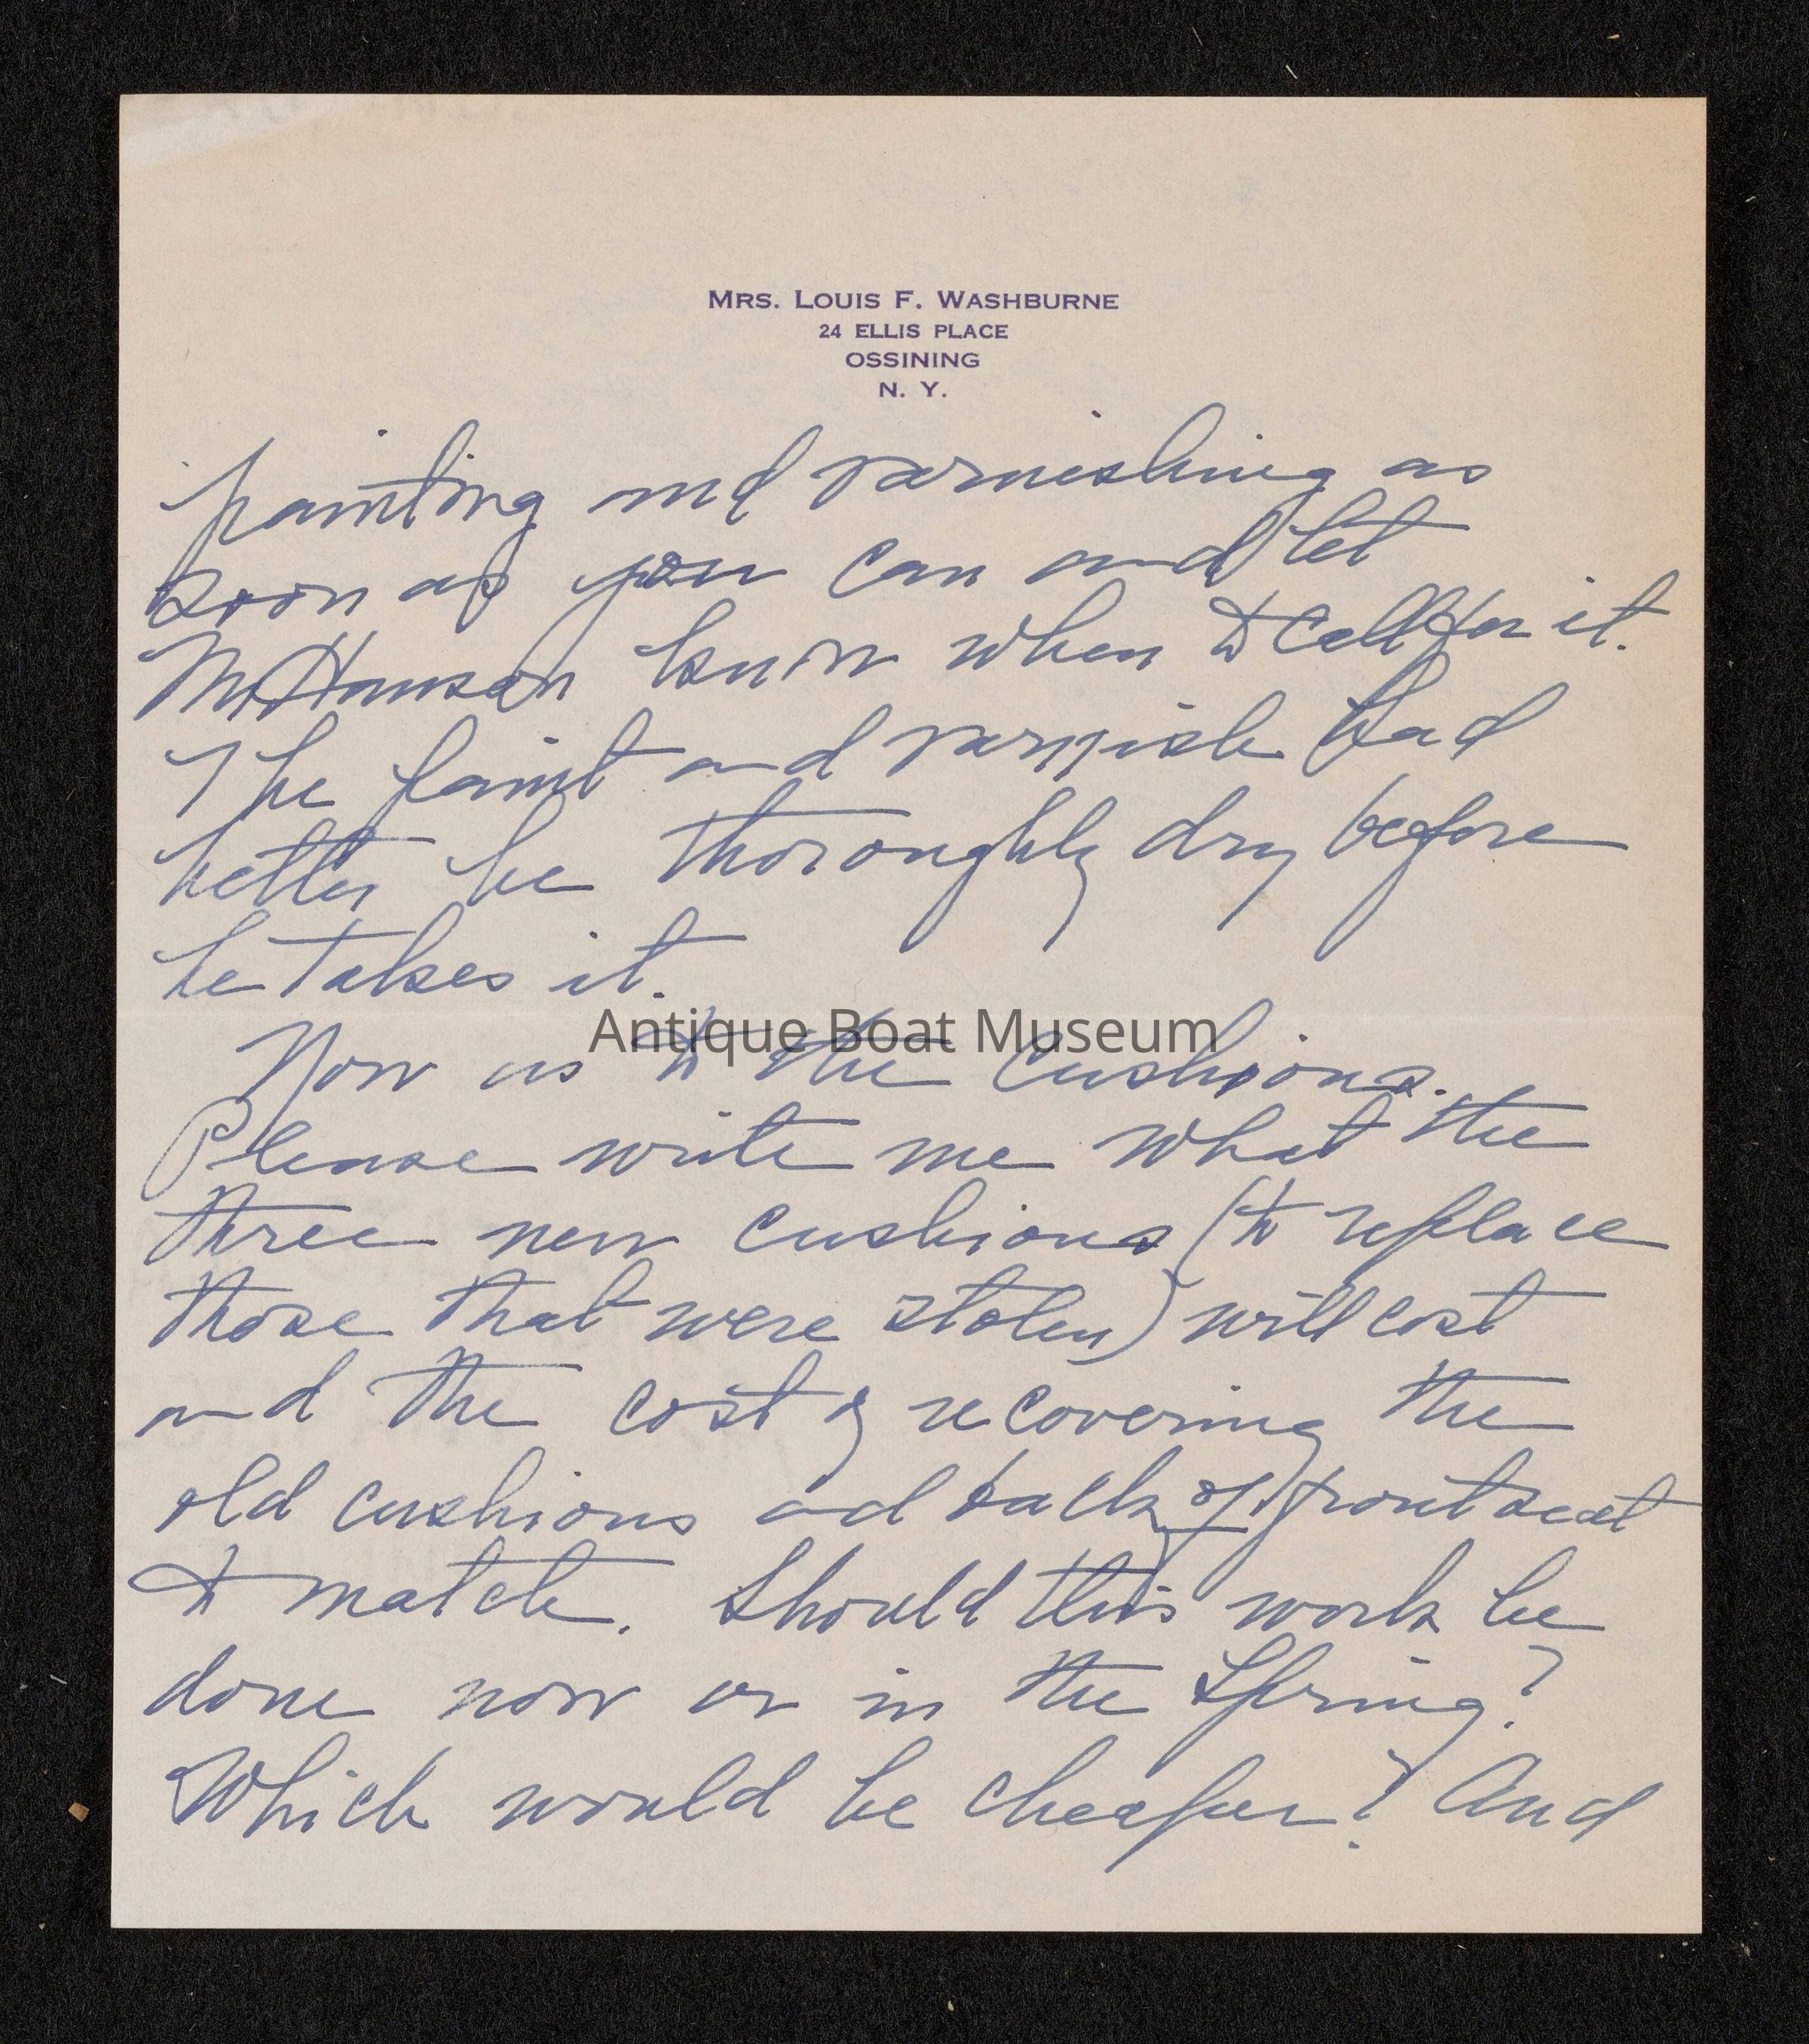 MRS. LOUIS F. WASHBURNE
24 ELLIS PLACE
OSSINING
N. Y.
painting and varnishing as
soon as you can and let
Mr Hansen know when to call for it.
The paint and varnish had
better be thoroughly dry before
he takes it.
Antique Boat Museum
Now as to the cushions.
Please write me what the
three new cushions (to replace
those that were stolen) will cost
and the cost of recovering the
old cushions and back of front seat
to match. Should this work be
done now or in the Spring?
Which would be cheaper? And